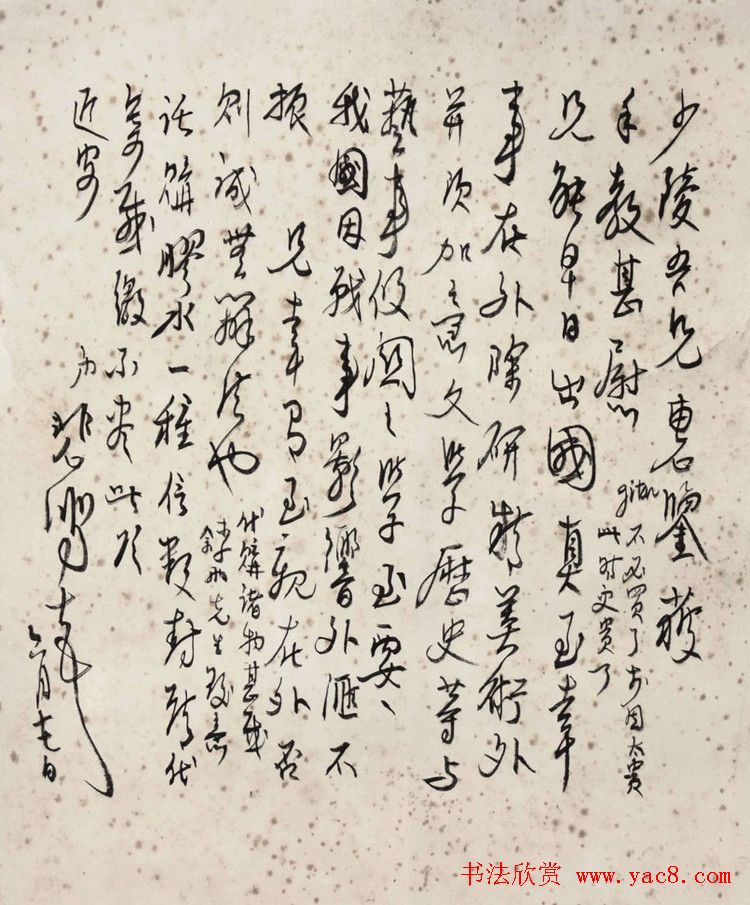 少陵吾兄惠鉴獲
手教甚慰
不必買了亦因太貴
此时更贵了
兄能早日出國真至幸
事在外除研精美術外
并須加意文學歷史等与
藝事攸關之學至要、
我國因戰事影響外滙不
振 兄幸局至窺在外否
則誠無辦法也
代購諸物甚感
先生致意
話購膠水一種信數封請代
寄感激不盡此頌
近安
弟悲鴻
六月七日
书法欣赏 www.yac8.com